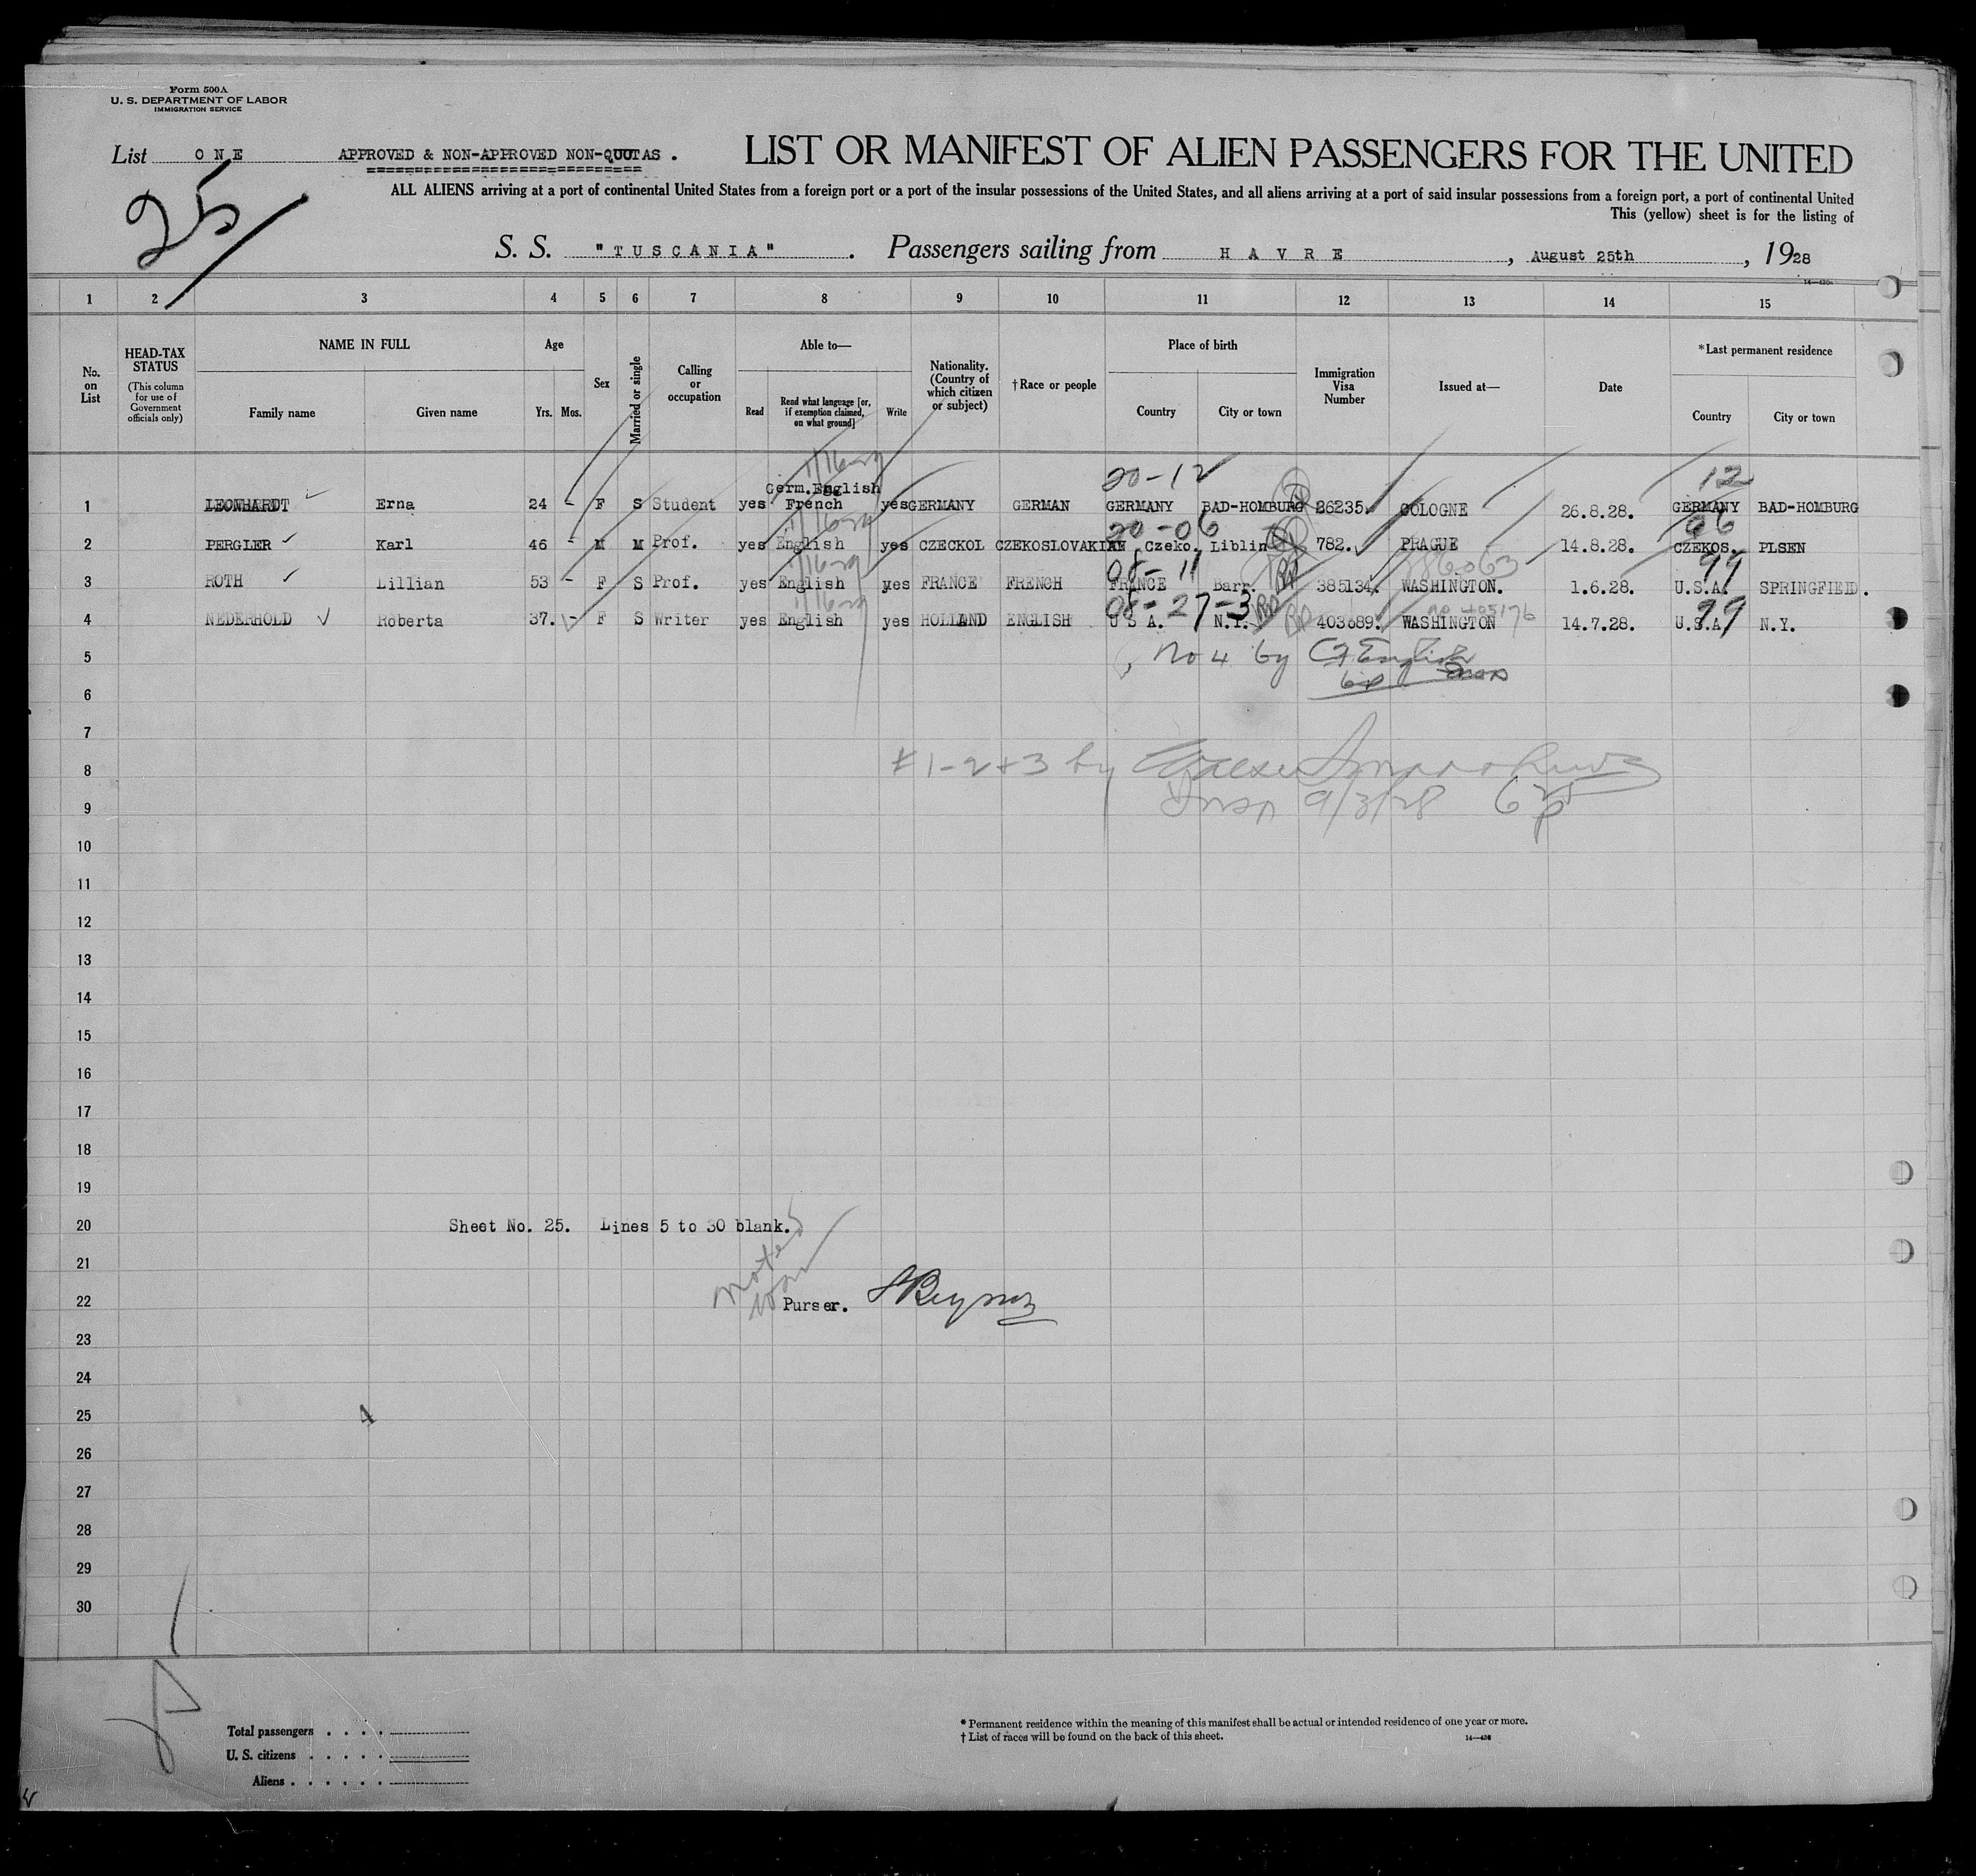 Form 500A
U. S. DEPARTMENT OF LABOR
IMMIGRATION SERVICE
List ONE APPROVED & NON-APPROVED NON-QUOTAS .
LIST OR MANIFEST OF ALIEN PASSENGERS FOR THE UNITED
25
ALL ALIENS arriving at a port of continental United States from a foreign port or a port of the insular possessions of the United States, and all aliens arriving at a port of said insular possessions from a foreign port, a port of continental United
This (yellow) sheet is for the listing of
S. S. "TUSCANIA" . Passengers sailing from HAVRE , August 25th , 1928
1 2 3 4 5 6 7 8 9 10 11 12 13 14 15
No. on List
HEAD-TAX STATUS (This column for use of Government officials only)
NAME IN FULL
Family name Given name
Age
Yrs. Mos.
Sex
Married or single
Calling or occupation
Able to—
Read Read what language [or, if exemption claimed, on what ground] Write
Nationality. (Country of which citizen or subject)
†Race or people
Place of birth
Country City or town
Immigration Visa Number
Issued at—
Date
*Last permanent residence
Country City or town
20-12 12
Germ.English
1 LEONHARDT Erna 24 - F S Student yes French yes GERMANY GERMAN GERMANY BAD-HOMBURG 26235. COLOGNE 26.8.28. GERMANY BAD-HOMBURG
20-06 06
2 PERGLER Karl 46 - M M Prof. yes English yes CZECKOL CZEKOSLOVAKIAN Czeko. Liblin 782. PRAGUE 14.8.28. CZEKOS. PLSEN
08-11 99
3 ROTH Lillian 53 - F S Prof. yes English yes FRANCE FRENCH FRANCE Barr. 385134. WASHINGTON. 1.6.28. U.S.A. SPRINGFIELD.
08-27-3 99
4 NEDERHOLD Roberta 37. - F S Writer yes English yes HOLLAND ENGLISH U S A. N.Y. 403689. WASHINGTON 14.7.28. U.S.A. N.Y.
5 No 4 by
6
7
8 #1-2+3 by
9 Insp 9/3/28
10
11
12
13
14
15
16
17
18
19
20 Sheet No. 25. Lines 5 to 30 blank.
21
22 Purser.
23
24
25
26
27
28
29
30
Total passengers . . . .
U. S. citizens . . . . .
Aliens . . . . . .
* Permanent residence within the meaning of this manifest shall be actual or intended residence of one year or more.
† List of races will be found on the back of this sheet. 14—430